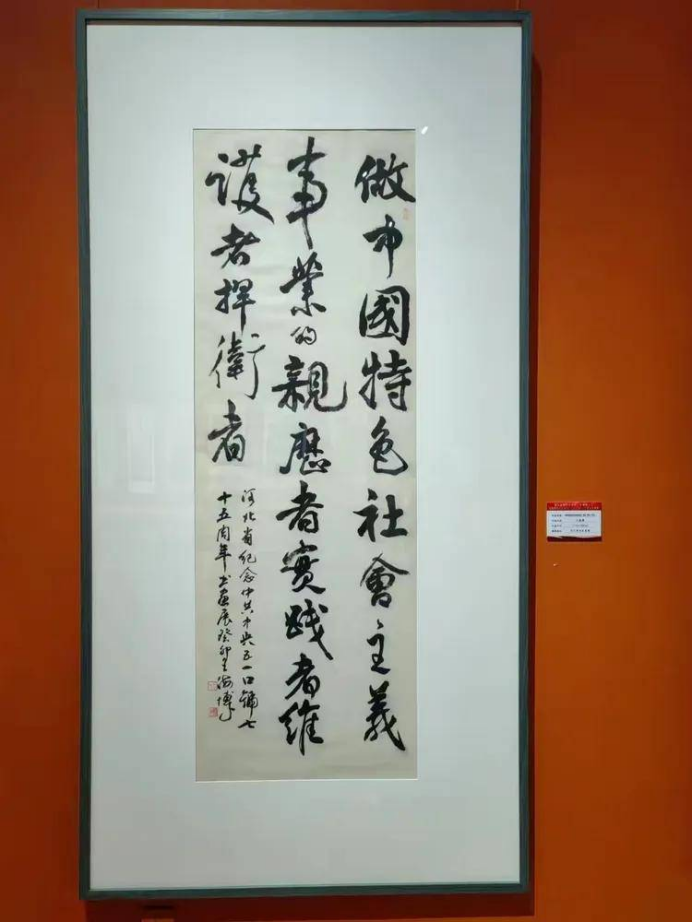 做中國特色社會主義
事業的親歷者實踐者維
護者捍衛者
河北省紀念中共中央五一口號七
十五周年书画展癸卯王海博